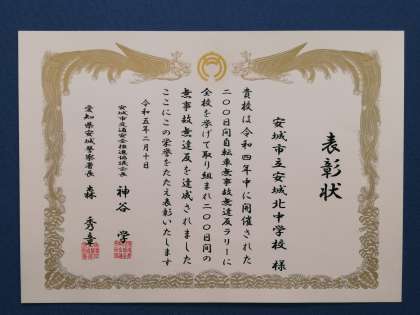 表彰状
安城市立安城北中学校 様
貴校は令和四年中に開催された
二〇〇日間自転車無事故無違反ラリーに
全校を挙げて取り組まれ二〇〇日間の
無事故無違反を達成されました
ここにこの栄誉をたたえ表彰いたします
令和五年二月十日
安城市交通安全推進協議会長 神谷 学
愛知県安城警察署長 森 秀章